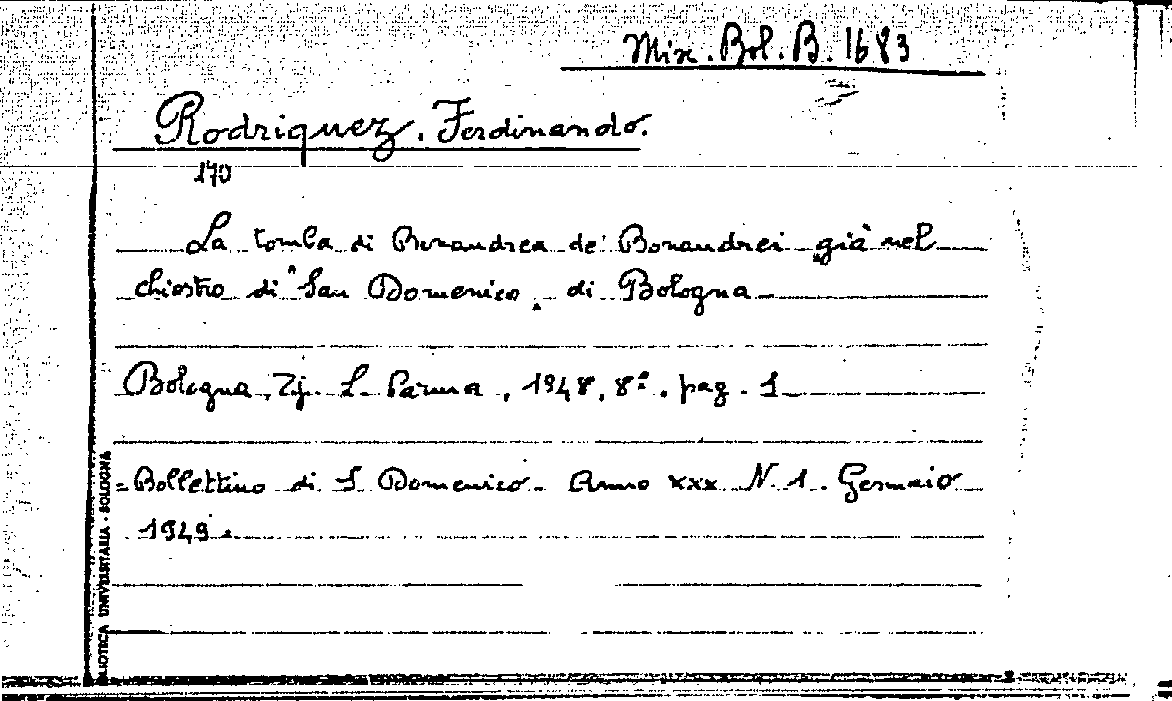 Mix. Bol. B. 1683
Rodriquez, Ferdinando.
170
La tomba di Bonandrea de' Bonandrei già nel
chiostro di "San Domenico" di Bologna
Bologna, Tip. L. Parma, 1948, 8°. pag. 1
= Bollettino di S. Domenico. Anno XXX N. 1. Gennaio
1949.
BIBLIOTECA UNIVERSITARIA - BOLOGNA